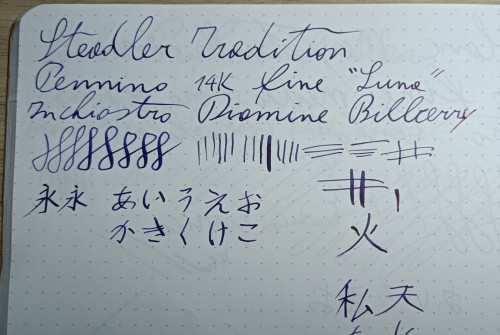 Steadler Tradition
Pennino 14K fine "Luna"
Inchiostro Diamine Bilberry
永永 あいうえお
かきくけこ
火
私天